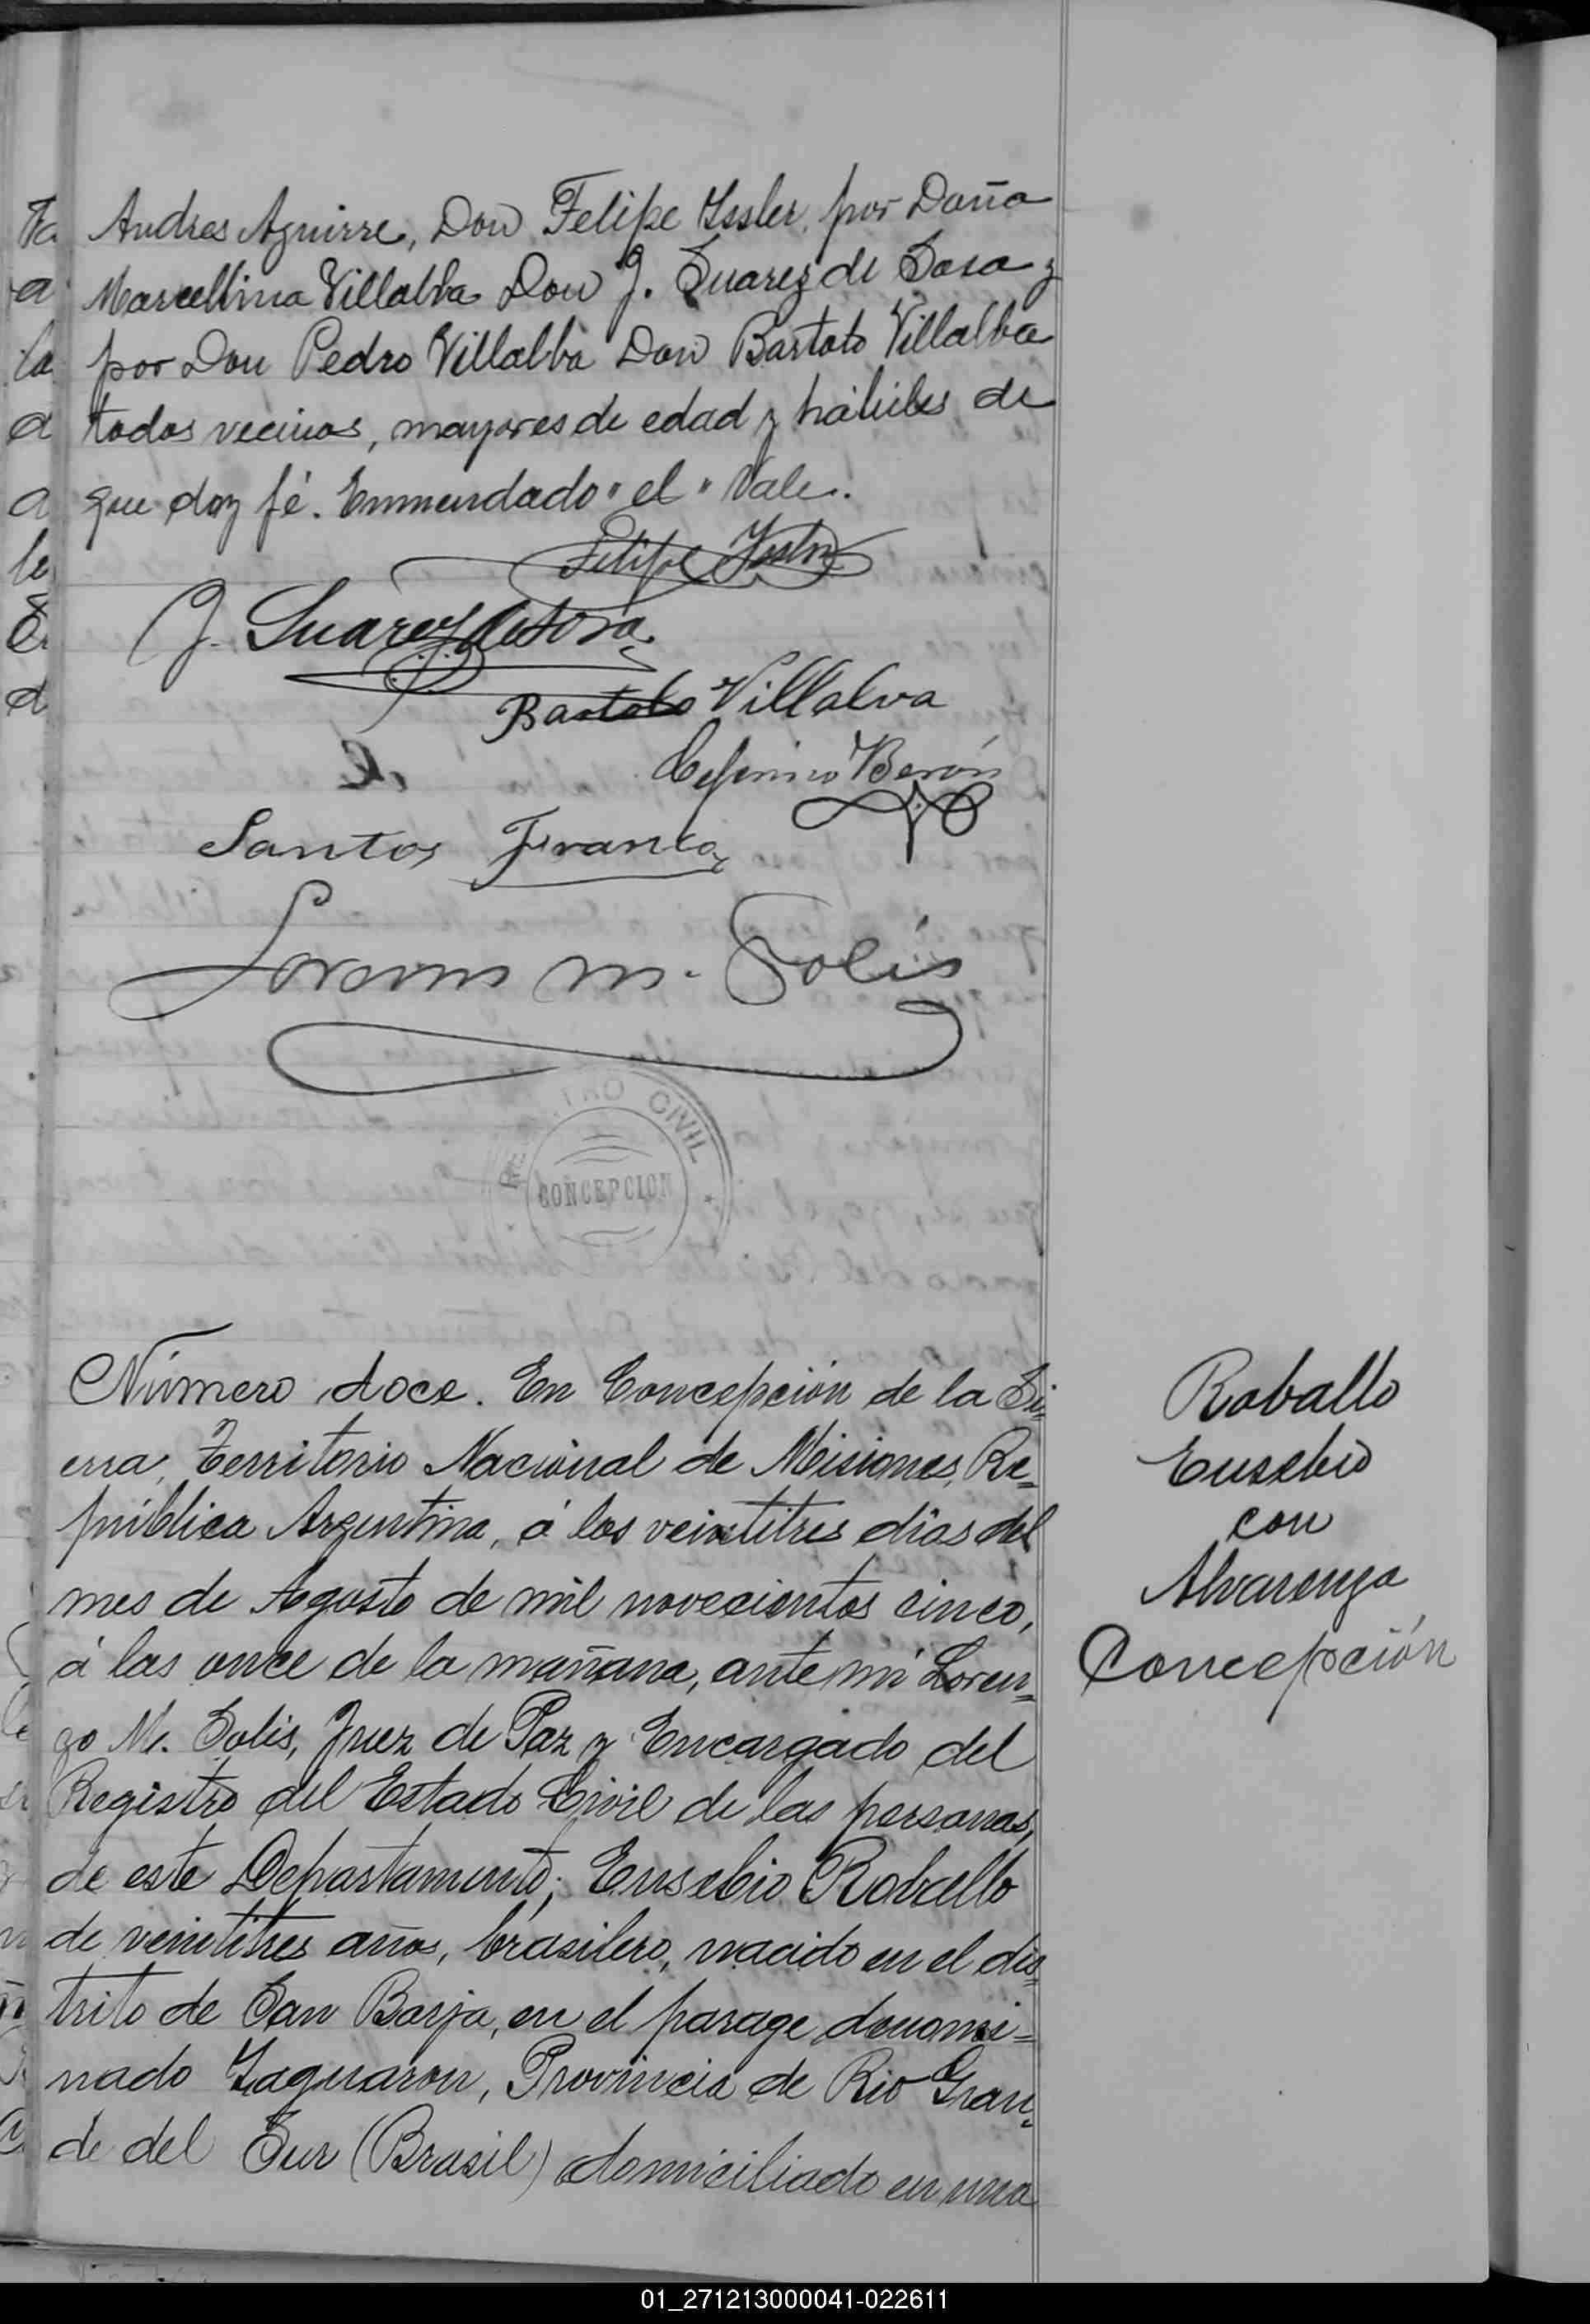 Andres Aguirre, Don Felipe Yssler, por Doña
Marcellina Villalba Don J. Suarez de Sosa y
por Don Pedro Villalba Don Bartolo Villalba
todos vecinos, mayores de edad y hábiles de
que doy fé. Enmendado "el" Vale.
Felipe Yssler
J. Suarez de Sosa
Bartolo Villalva
Cefirino Berón
Santos Franco
Lorenzo M. Solís
REGISTRO CIVIL
CONCEPCION
Número doce. En Concepción de la Si-
erra, Territorio Nacional de Misiones, Re-
pública Argentina, á los veintitres dias del
mes de Agosto de mil novecientos cinco,
á las once de la mañana, ante mi Loren-
zo M. Solis, Juez de Paz y Encargado del
Registro del Estado Civil de las personas,
de este Departamento; Eusebio Roballo
de veintitres años, brasilero, nacido en el dis-
trito de San Borja, en el parage denomi-
nado Yaguaron, Provincia de Rio Gran-
de del Sur (Brasil) domiciliado en una
Roballo
Eusebio
con
Alvarenga
Concepción
01_271213000041-022611